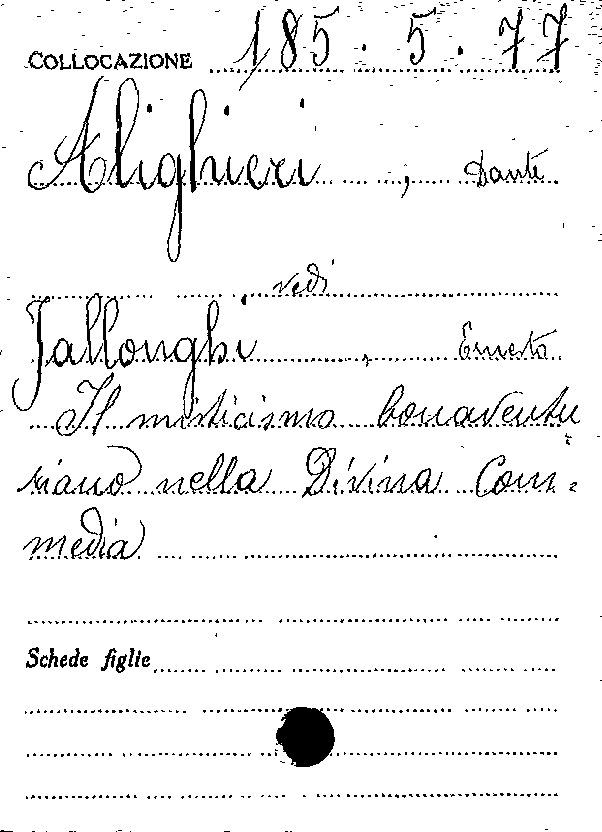 COLLOCAZIONE 185.5.77
Alighieri, Dante
vedi
Jallonghi, Ernesto
Il misticismo bonaventu
riano nella Divina Com=
media
Schede figlie